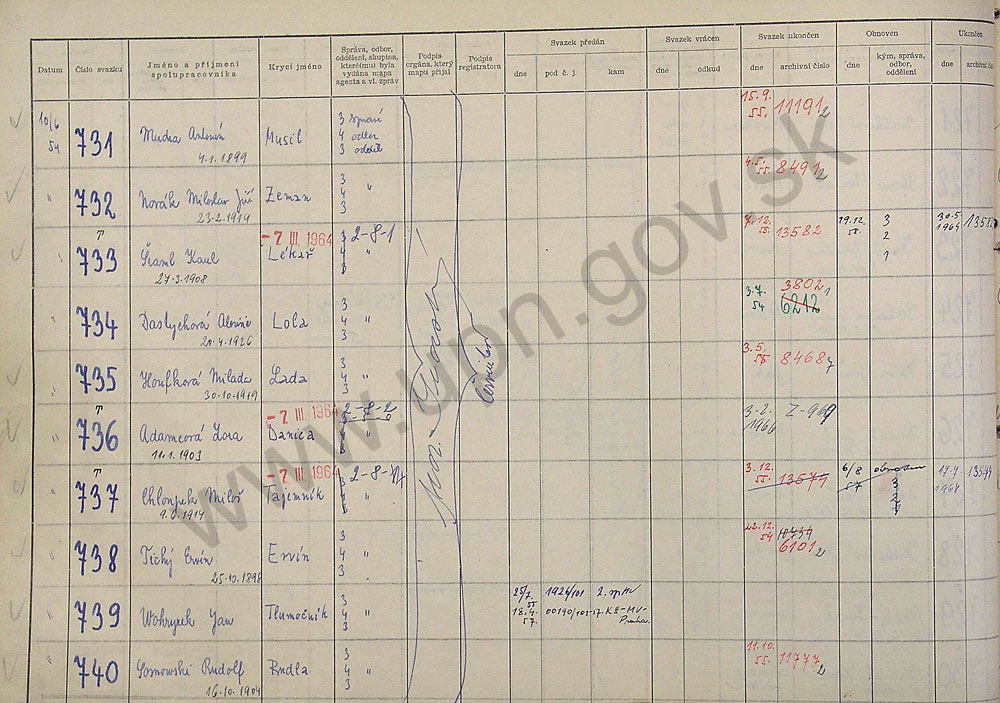 Datum
Číslo svazku
Jméno a příjmení
spolupracovníka
Krycí jméno
Správa, odbor,
oddělení, skupina,
které(mu) byla
vydána mapa
agenta a vl. zpráv
Podpis
orgána, který
mapu přijal
Podpis
registratora
Svazek předán
dne
pod č. j.
kam
Svazek vrácen
dne
odkud
Svazek ukončen
dne
archivní číslo
Obnoven
dne
kým, správa,
odbor,
oddělení
Ukončen
dne
archivní čísl
10/6
54
731
Mudra Antonín
4.1.1899
Musil
3 správi
4 odbor
3 odděl.
15.9.
55.
11191/2
" 732
Novák Miloslav Jiří
23.2.1914
Zeman
3
4 "
3
4.5.
55
8491/2
" 733
Karel
27.3.1908
-7 III. 1964
Lékař
2-8-1
7.12.
55.
13582
19.12.
58.
3
2
1
30.5.
1964
13582
" 734
20.4.1926
Lola
3
4 "
3
3.7.
54
3802/1
6212
" 735
Houfková Milada
30.10.1919
Lada
3
4 "
3
3.5.
55.
8468
" 736
Adamcová Lora
11.1.1903
-7 III. 1964
Danica
2-8-2
3.2.
1964
Z-969
" 737
Chloupek Miloš
-7 III. 1964
Tajemník
3.12.
55.
13577
6/8
57
obnoven
3
1964
" 738
Tichý Ervín
25.10.1898
Ervín
3
4 "
3
22.12.
54
6101/2
" 739
Jan
Tlumočník
3
4 "
3
25/7
55
18.4.
57.
KS-MV-
Praha.
" 740
Rudolf
16.10.1904
Rudla
3
4 "
3
11.10.
55.
11777/2
www.upn.gov.sk